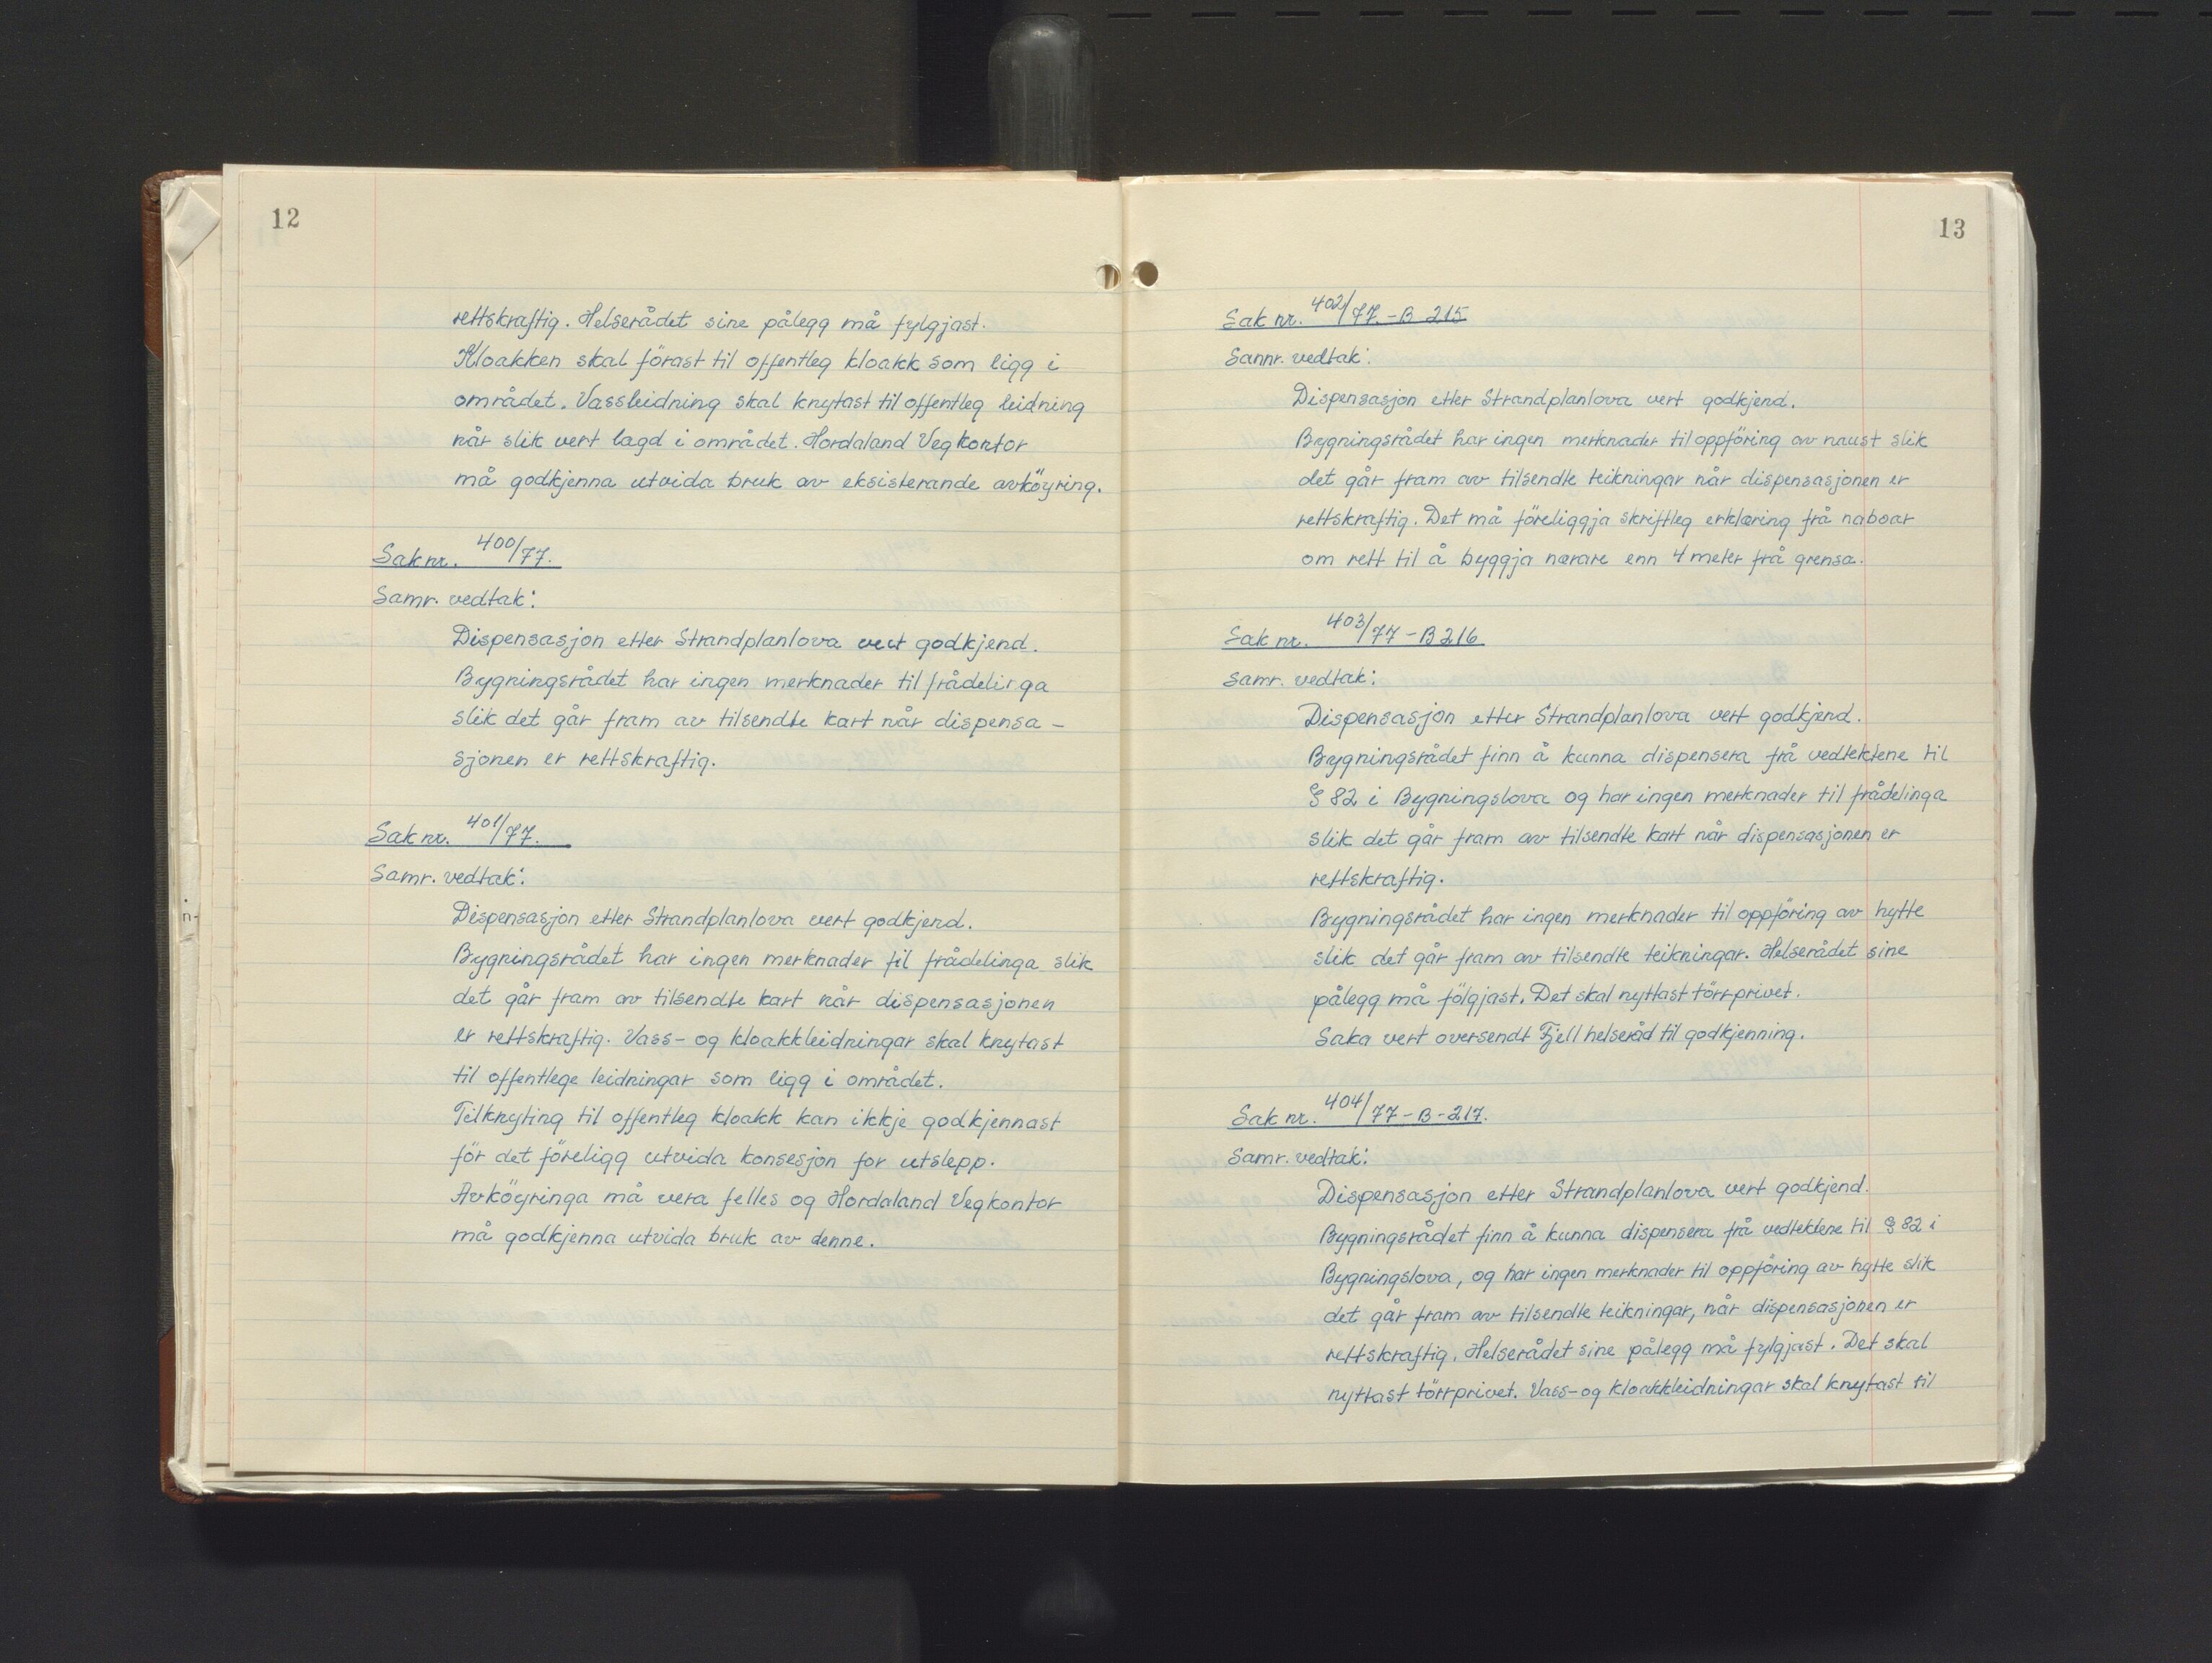 12
rettskraftig. Helserådet sine pålegg må fylgjast.
Kloakken skal förast til offentleg kloakk som ligg i
området. Vassleidning skal knytast til offentleg leidning
når slik vert lagd i området. Hordaland Vegkontor
må godkjenna utvida bruk av eksisterande avköyring.
Sak nr. 400/77.
Samr. vedtak:
Dispensasjon etter Strandplanlova vert godkjend.
Bygningsrådet har ingen merknader til frådelinga
slik det går fram av tilsendte kart når dispensa-
sjonen er rettskraftig.
Sak nr. 401/77.
Samr. vedtak:
Dispensasjon etter Strandplanlova vert godkjend.
Bygningsrådet har ingen merknader til frådelinga slik
det går fram av tilsendte kart når dispensasjonen
er rettskraftig. Vass- og kloakkleidningar skal knytast
til offentlege leidningar som ligg i området.
Tilknyting til offentleg kloakk kan ikkje godkjennast
för det föreligg utvida konsesjon for utslepp.
Avköyringa må vera felles og Hordaland Vegkontor
må godkjenna utvida bruk av denne.
13
Sak nr. 402/77.-B 215
Sannr. vedtak:
Dispensasjon etter Strandplanlova vert godkjend.
Bygningsrådet har ingen merknader til oppföring av naust slik
det går fram av tilsendte teikningar når dispensasjonen er
rettskraftig. Det må föreliggja skriftleg erklæring frå naboar
om rett til å byggja nærare enn 4 meter frå grensa.
Sak nr. 403/77-B 216
Samr. vedtak:
Dispensasjon etter Strandplanlova vert godkjend.
Bygningsrådet finn å kunna dispensera frå vedtektene til
§ 82 i Bygningslova og har ingen merknader til frådelinga
slik det går fram av tilsendte kart når dispensasjonen er
rettskraftig.
Bygningsrådet har ingen merknader til oppföring av hytte
slik det går fram av tilsendte teikningar. Helserådet sine
pålegg må fölgjast. Det skal nyttast törrprivet.
Saka vert oversendt Fjell helseråd til godkjenning.
Sak nr. 404/77-B-217.
Samr. vedtak:
Dispensasjon etter Strandplanlova vert godkjend.
Bygningsrådet finn å kunna dispensera frå vedtektene til § 82 i
Bygningslova, og har ingen merknader til oppföring av hytte slik
det går fram av tilsendte teikningar, når dispensasjonen er
rettskraftig. Helserådet sine pålegg må fylgjast. Det skal
nyttast törrprivet. Vass- og kloakkleidningar skal knytast til